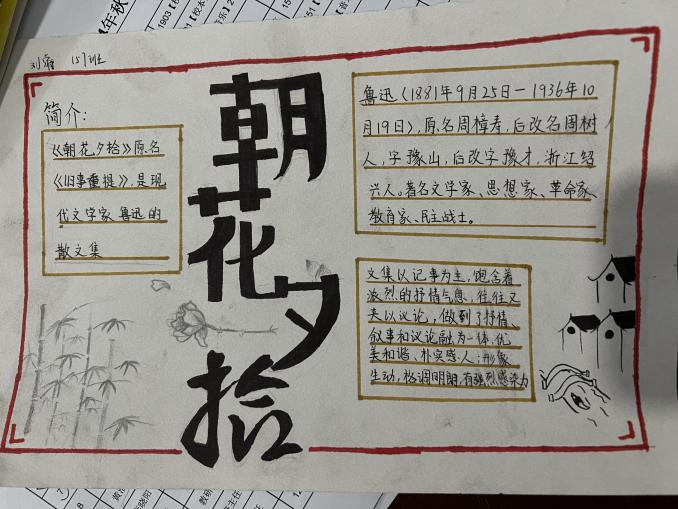 157班
简介:
《朝花夕拾》原名
《旧事重提》,是现
代文学家鲁迅的
散文集
朝花夕拾
鲁迅(1881年9月25日－1936年10
月19日),原名周樟寿,后改名周树
人,字豫山,后改字豫才,浙江绍
兴人。著名文学家、思想家、革命家、
教育家、民主战士。
文集以记事为主,饱含着
浓烈的抒情气息,往往又
夹以议论,做到了抒情、
叙事和议论融为一体,优
美和谐、朴实感人;形象
生动,格调明朗,有强烈感染力